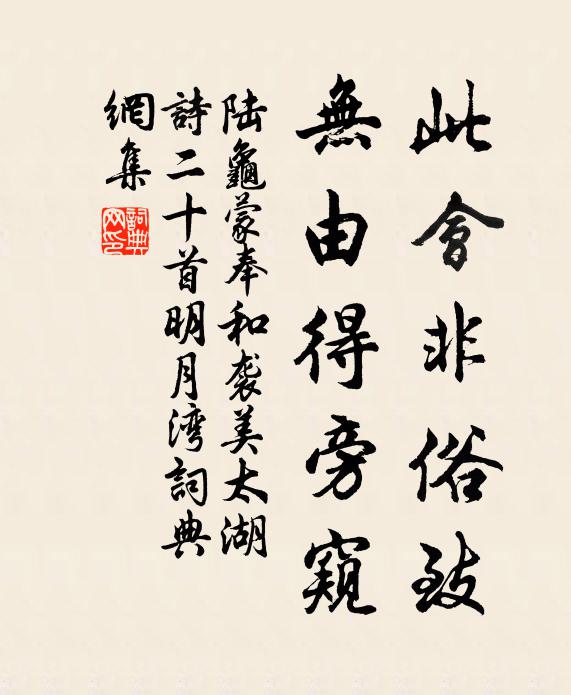 此會非俗致
無由得旁窺
陆龜蒙奉和袭美太湖
詩二十首明月湾詞典
網集
詞典网印